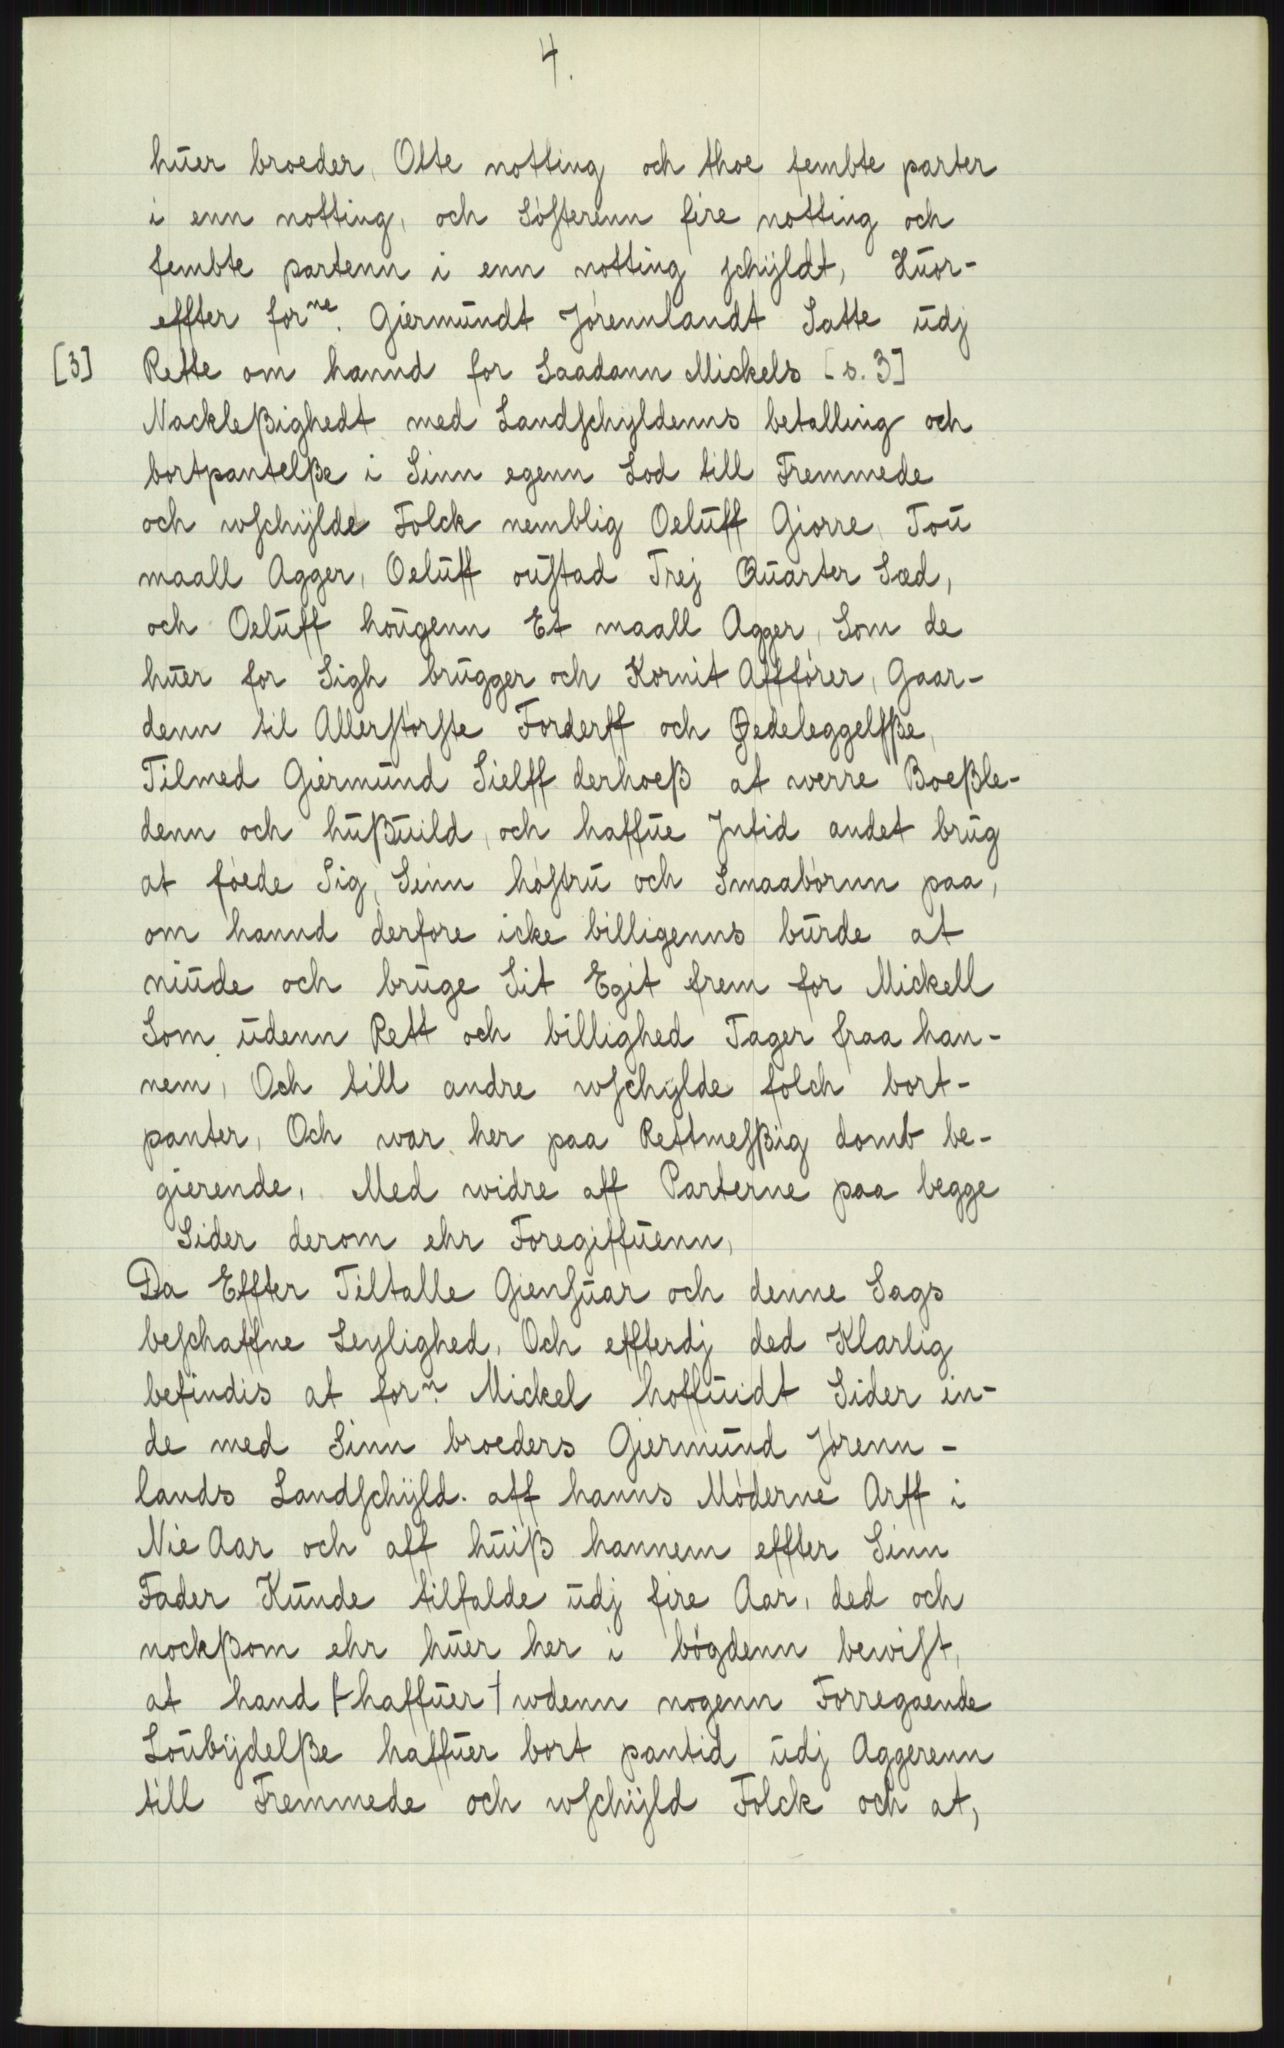 4.
huer broeder, Otte notting och thoe fembte parter
i enn notting, och Søsterenn fire notting och
fembte partenn i enn notting schÿldt, Huor-
effter forne. Giermundt Jørennlandt Satte udj
[3] Rette om hannd for Saadann Mickels [s. 3]
Nackleßighedt med Landschyldenns betalling och
bortpantelße i Sinn egenn Lod till Fremmede
och wschÿlde Folck nemblig Oeluff Giorre, Tou
maall Agger, Oeluff oustad Trej Quarter Sæd,
och Oeluff hougenn Et maall Agger, Som de
huer for Sigh brugger och Kornit Afffører, Gaar-
denn til Allerstørste Forderff och Øedeleggelsße,
Tilmed Giermund Sielff derhoeß at werre Boeßle-
denn och hußuild, och haffue Jntid andet brug
at føede Sig, Sinn høstru och Smaabørnn paa,
om hannd derfore icke billigenns burde at
niude och bruge Sit Egit frem for Mickell
Som udenn Rett och billighed Tager fraa han-
nem, Och till andre wschylde folch bort-
panter, Och war her paa Rettmesßig domb be-
gierende, Med widre aff Parterne paa begge
Sider derom ehr Foregiffuenn,
Da Effter Tiltalle Giensuar och denne Sags
beschaffne Leylighed, Och effterdj ded Klarlig
befindis at forn. Mickel hoffuidt Sider in-
de med Sinn broeders Giermund Jørenn-
lands Landschÿld. aff hanns Møderne Arff i
Nie Aar och aff huiß hannem effter Sinn
Fader Kunde tilfalde udj fire Aar, ded och
nockßom ehr huer her i bøgdenn bewist,
at hand [haffuer] wdenn nogenn Forregaende
Loubÿdelße haffuer bort pantid udj Aggerenn
till Fremmede och wschÿld Folck och at,